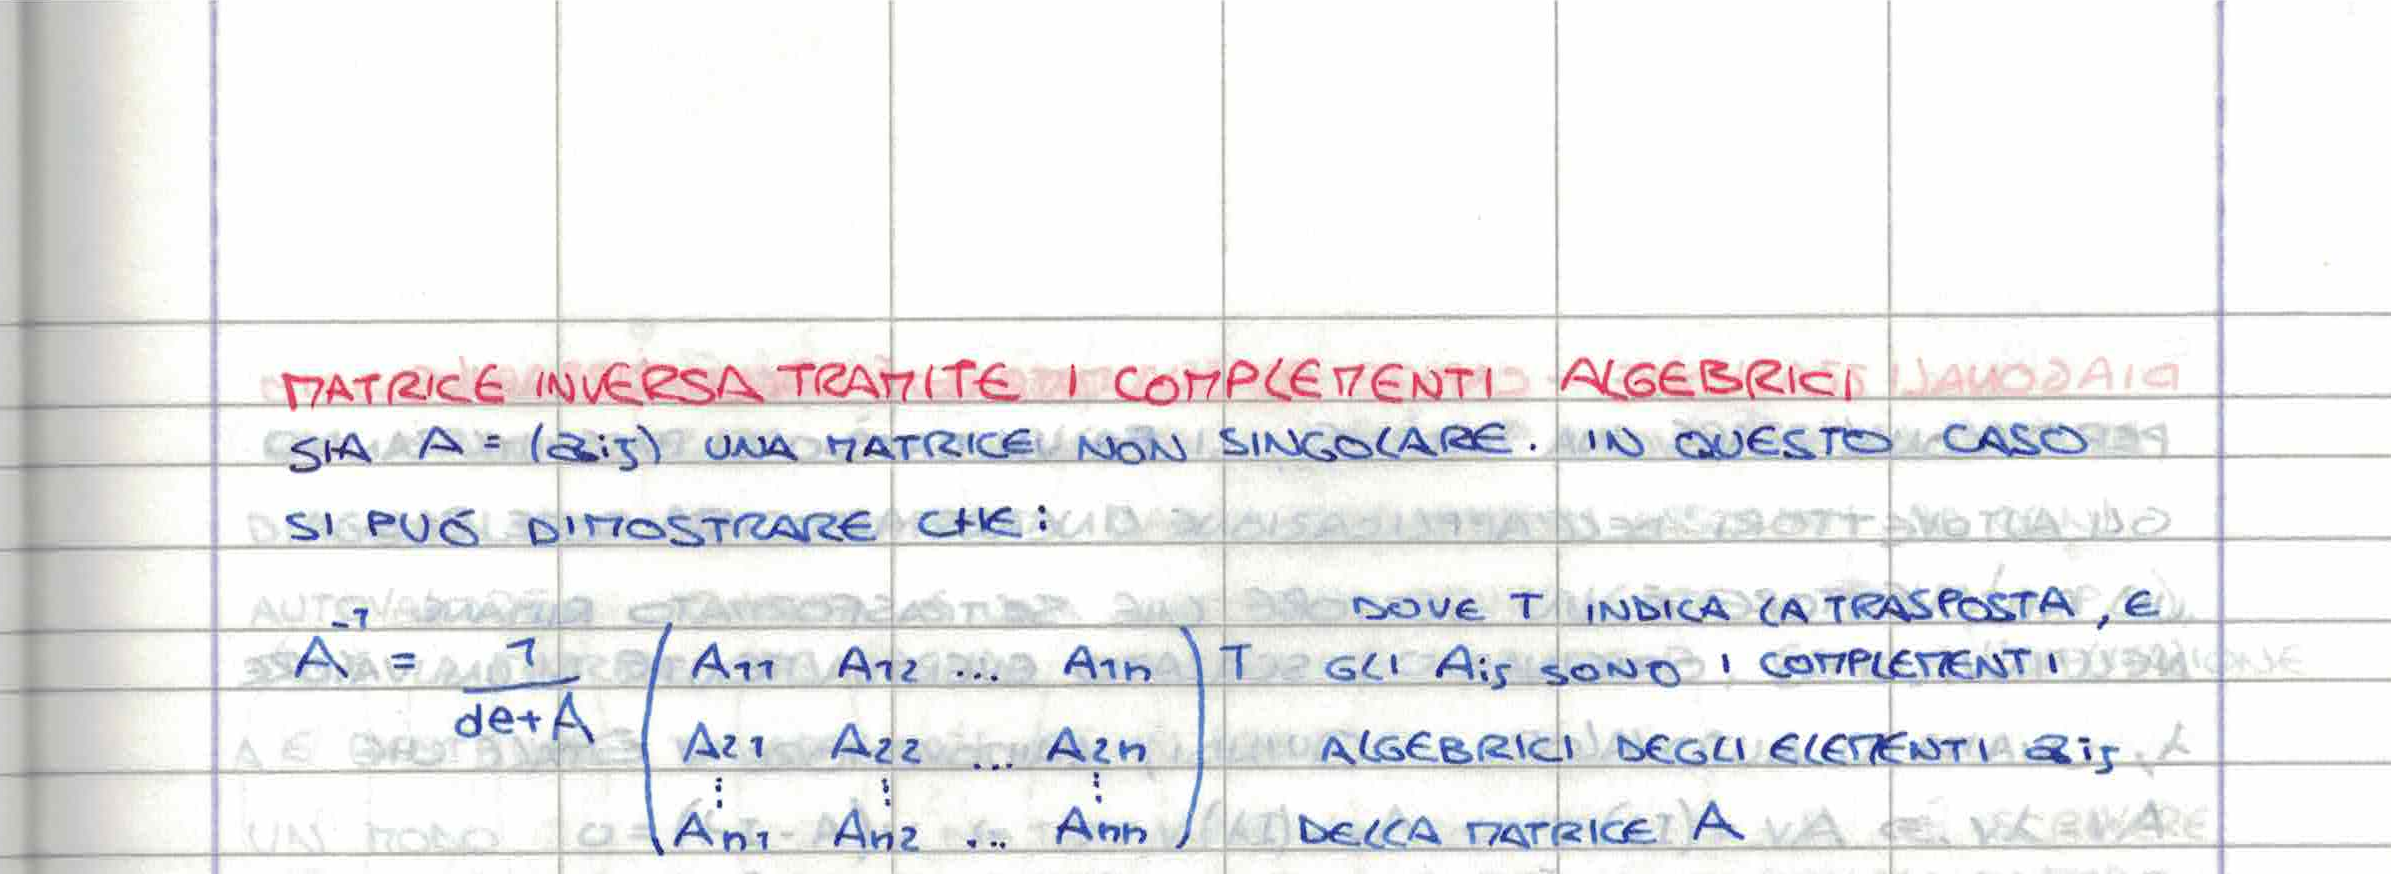 MATRICE INVERSA TRAMITE I COMPLEMENTI ALGEBRICI
SIA A = (aij) UNA MATRICE NON SINGOLARE. IN QUESTO CASO
SI PUÓ DIMOSTRARE CHE:
A⁻¹ = 1/det A ( A11 A12 ... A1n
A21 A22 ... A2n
⋮ ⋮ ⋮
An1 An2 ... Ann ) T
DOVE T INDICA LA TRASPOSTA, E
GLI Aij SONO I COMPLEMENTI
ALGEBRICI DEGLI ELEMENTI aij
DELLA MATRICE A